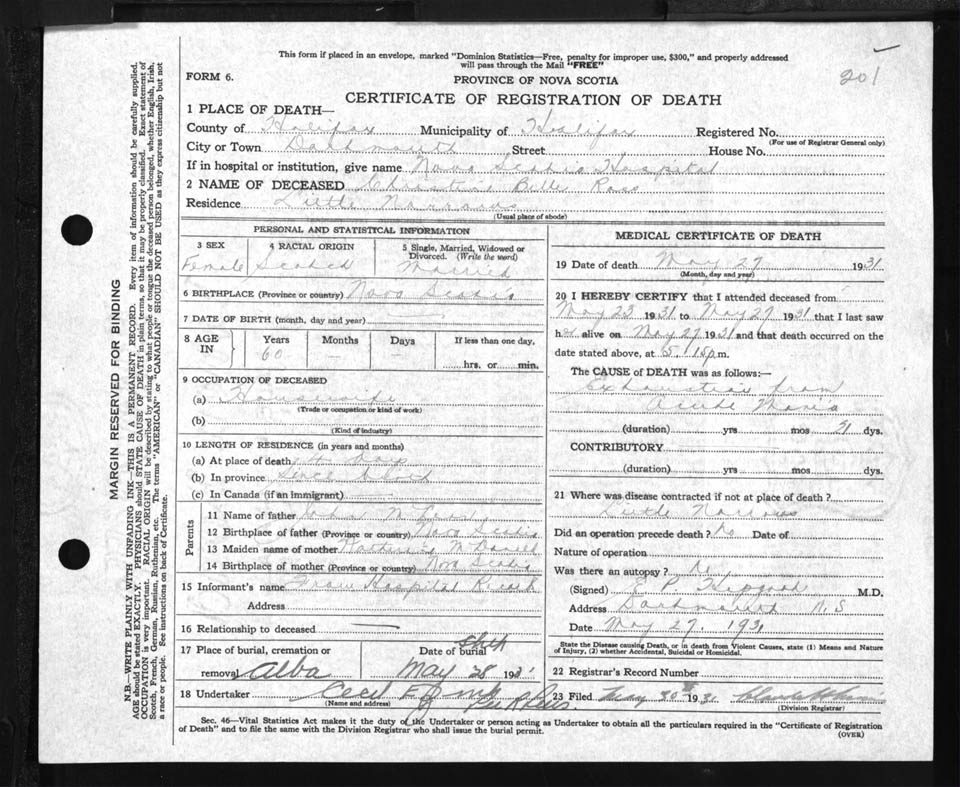 This form if placed in an envelope, marked "Dominion Statistics—Free, penalty for improper use, $300," and properly addressed
will pass through the Mail "FREE"
201
FORM 6.
PROVINCE OF NOVA SCOTIA
CERTIFICATE OF REGISTRATION OF DEATH
1 PLACE OF DEATH—
County of Halifax Municipality of Halifax Registered No.
(For use of Registrar General only)
City or Town Dartmouth Street House No.
If in hospital or institution, give name Nova Scotia Hospital
2 NAME OF DECEASED Christine Belle Ross
Residence Little Narrows
(Usual place of abode)
PERSONAL AND STATISTICAL INFORMATION
3 SEX 4 RACIAL ORIGIN 5 Single, Married, Widowed or
Divorced. (Write the word)
Female Scotch Married
6 BIRTHPLACE (Province or country) Nova Scotia
7 DATE OF BIRTH (month, day and year) —
8 AGE IN Years Months Days If less than one day,
60 — — hrs. or min.
9 OCCUPATION OF DECEASED
(a) Housewife
(Trade or occupation or kind of work)
(b)
(Kind of industry)
10 LENGTH OF RESIDENCE (in years and months)
(a) At place of death 4 Days
(b) In province
(c) In Canada (if an immigrant)
Parents
11 Name of father John
12 Birthplace of father (Province or country) Nova Scotia
13 Maiden name of mother Katherine
14 Birthplace of mother (Province or country) Nova Scotia
15 Informant's name From Hospital Record
Address
16 Relationship to deceased —
17 Place of burial, cremation or Date of burial
removal Alba May 28 1931
18 Undertaker Cecil
(Name and address)
MEDICAL CERTIFICATE OF DEATH
19 Date of death May 27 1931
(Month, day and year)
20 I HEREBY CERTIFY that I attended deceased from
May 23 1931 to May 27 1931 that I last saw
her alive on May 27 1931 and that death occurred on
the date stated above, at 5.15 p.m.
The CAUSE of DEATH was as follows:—
Exhaustion from
Acute Mania
(duration) yrs mos 21 dys.
CONTRIBUTORY
(duration) yrs. mos. dys.
21 Where was disease contracted if not at place of death?
Little Narrows
Did an operation precede death? No Date of
Nature of operation
Was there an autopsy? No
(Signed) E P M.D.
Address Dartmouth N.S
Date May 27. 1931
State the Disease causing Death, or in death from Violent Causes, state (1) Means and Nature
of Injury, (2) whether Accidental, Suicidal or Homicidal.
22 Registrar's Record Number
23 Filed May 30th 1931
(Division Registrar)
Sec. 46—Vital Statistics Act makes it the duty of the Undertaker or person acting as Undertaker to obtain all the particulars required in the "Certificate of Registration
of Death" and to file the same with the Division Registrar who shall issue the burial permit.
(OVER)
MARGIN RESERVED FOR BINDING
N.B.—WRITE PLAINLY WITH UNFADING INK—THIS IS A PERMANENT RECORD. Every item of information should be carefully supplied.
AGE should be stated EXACTLY. PHYSICIANS should STATE CAUSE OF DEATH in plain terms, so that it may be properly classified. Exact statement of
OCCUPATION is very important. RACIAL ORIGIN will be described by stating to what people or tongue the deceased person belonged, whether English, Irish,
Scotch, French, German, Russian, Ruthenian, etc. The terms "AMERICAN" or "CANADIAN" SHOULD NOT BE USED as they express citizenship but not
a race or people. See instructions on back of Certificate.